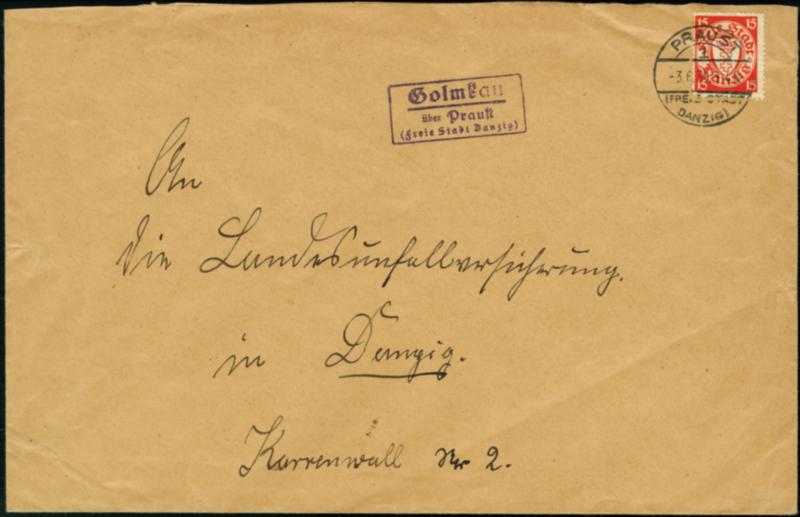 Golmkau
über Praust
(Freie Stadt Danzig)
PRAUST
1
-3.6.
(FREIE STADT
DANZIG)
15 15
15 15
An
die Landesunfallversicherung.
in Danzig.
Karrenwall Nr 2.